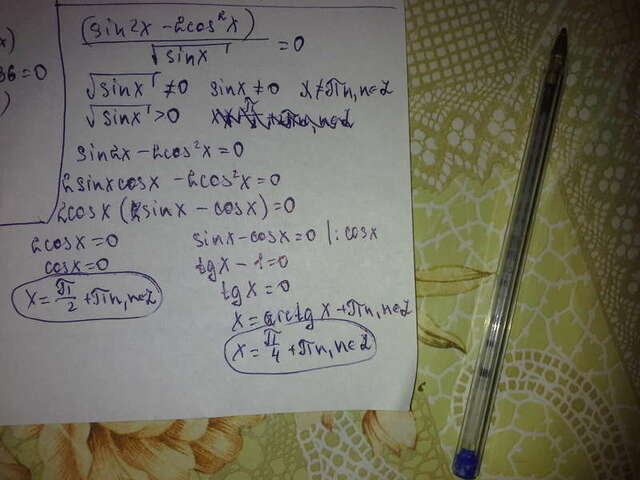 x)
36=0
)
(sin2x - 2cos²x) / √sinx = 0
√sinx ≠0 sinx ≠0 x≠πn, n∈Z
√sinx >0
sin2x - 2cos²x = 0
2sinxcosx - 2cos²x = 0
2cosx (sinx - cosx) = 0
2cosx = 0 sinx - cosx = 0 |: cosx
cosx = 0 tgx - 1 = 0
x = π/2 + πn, n∈Z tgx = 0
x = arctgx + πn, n∈Z
x = π/4 + πn, n∈Z